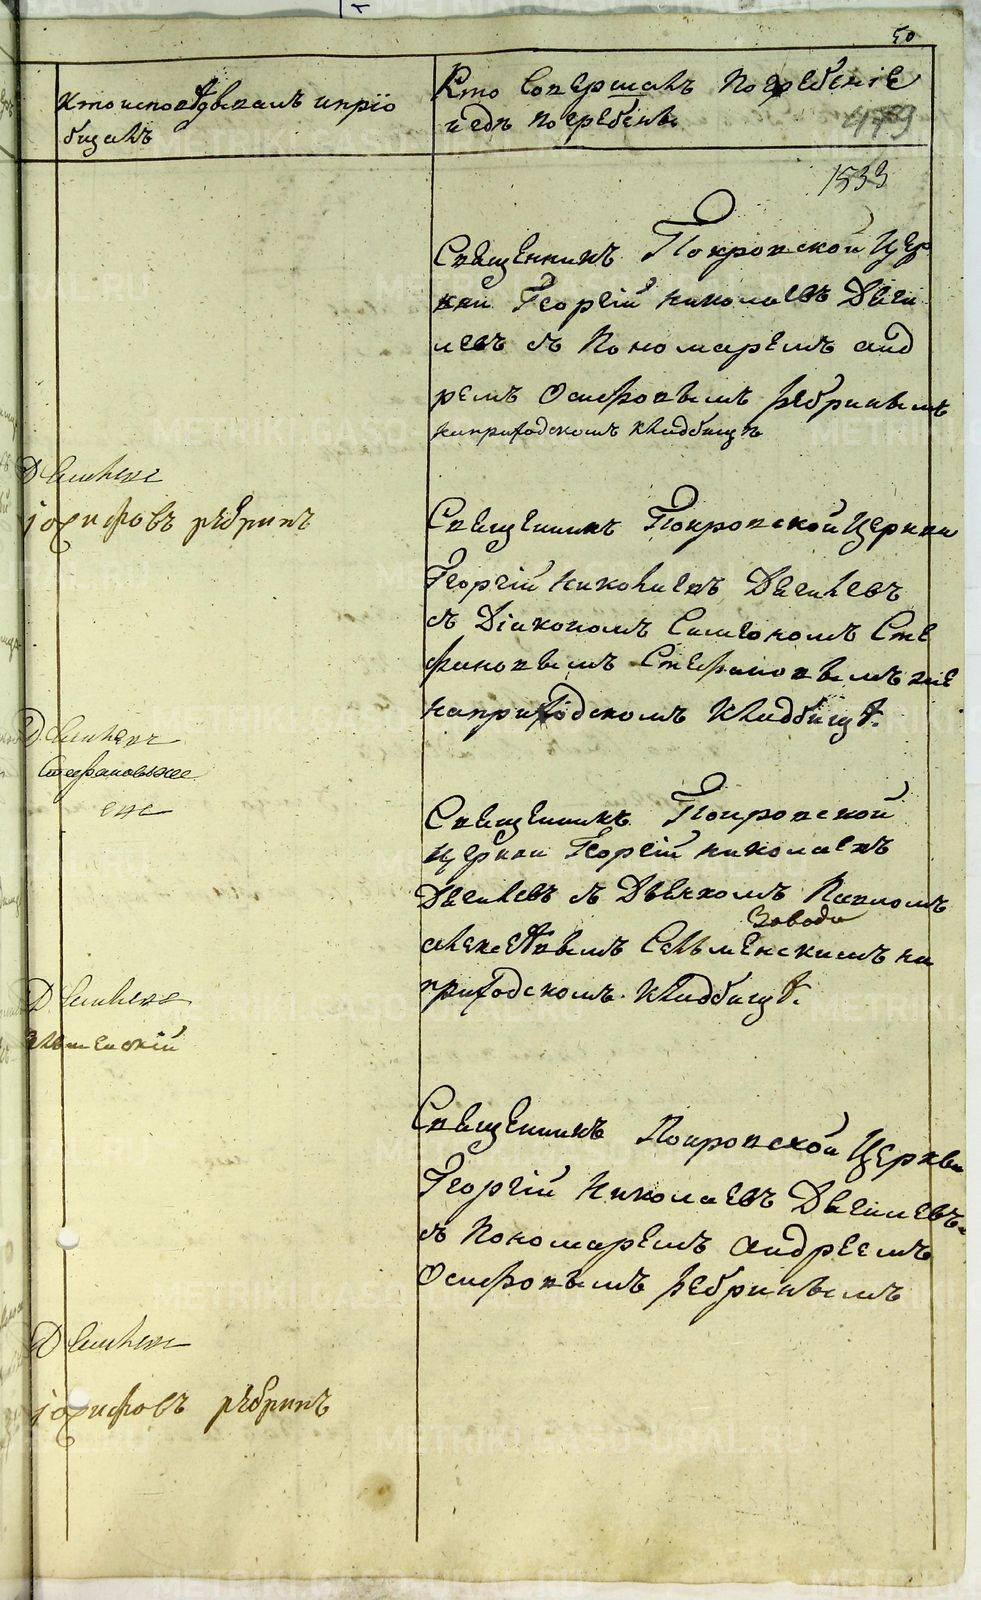 50
Кто исповѣдывалъ и прiо
бщалъ
Кто совершалъ погребенiе
и гдѣ погребенъ.
479
1533
Священникъ Покровской Цер
кви Георгiй Николаевъ Дяги
левъ съ Пономаремъ анд
реемъ Осиповымъ рѣбринымъ
на приходскомъ кладбищѣ
Дягилевъ
iосифовъ рѣбринъ
Священникъ Покровской Церкви
Георгiй Николаевъ Дягилевъ
съ Дiакономъ Симеономъ Сте
фановымъ Стефановымъ же
на приходскомъ кладбищѣ.
Дягилевъ
Стефановъ же
Священникъ Покровской
Церкви Георгiй Николаевъ
Дягилевъ съ Дьячкомъ Павломъ
завода
алексѣевымъ Сельменскимъ на
приходскомъ кладбищѣ.
Дягилевъ
Священникъ Покровской Церкви
Георгiй Николаевъ Дягилевъ
съ Пономаремъ андреемъ
Осиповымъ рѣбринымъ
Дягилевъ
iосифовъ рѣбринъ